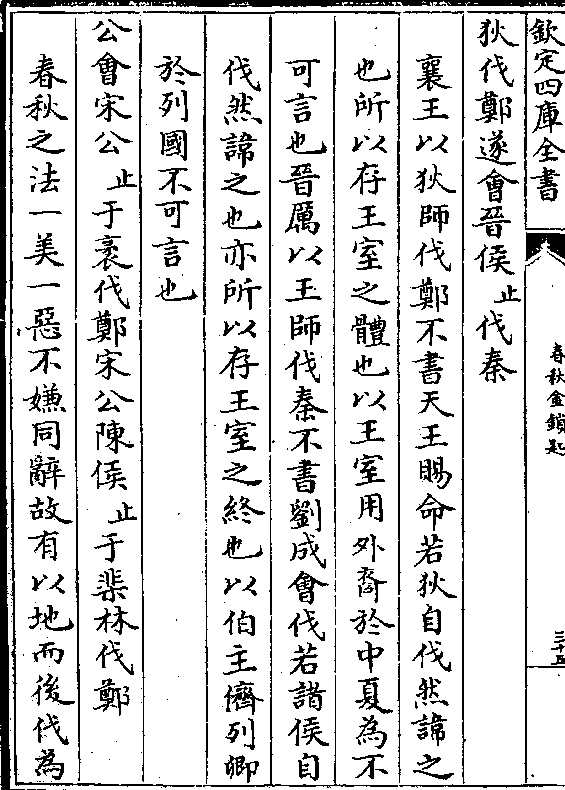 欽定四庫全書
春秋金鎖匙
三十五
狄伐鄭遂會晉侯止伐秦
襄王以狄師伐鄭不書天王賜命若狄自伐然諱之
也所以存王室之體也以王室用外裔於中夏為不
可言也晉厲以王師伐秦不書劉成會伐若諸侯自
伐然諱之也亦所以存王室之終也以伯主儕列卿
於列國不可言也
公會宋公止于袲伐鄭宋公陳侯止于棐林伐鄭
春秋之法一美一惡不嫌同辭故有以地而後伐為